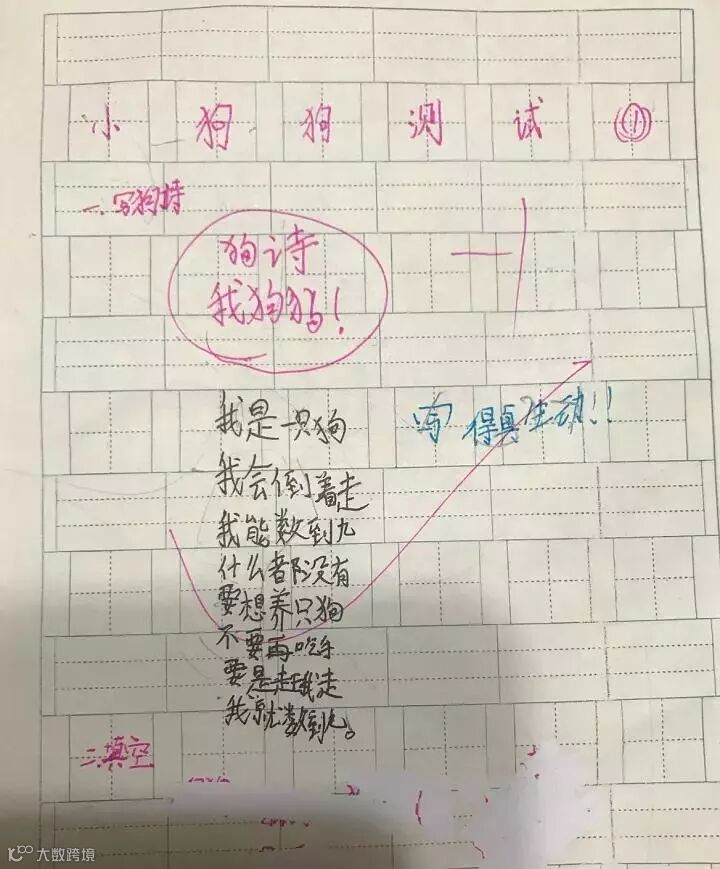 小狗狗测试①
一、写狗诗
狗诗
我狗吗!
我是一只狗
写得真生动!!
我会倒着走
我能数到九
什么都没有
要想养只狗
不要再吃手
要是赶我走
我就数到九。
二、填空
大数跨境